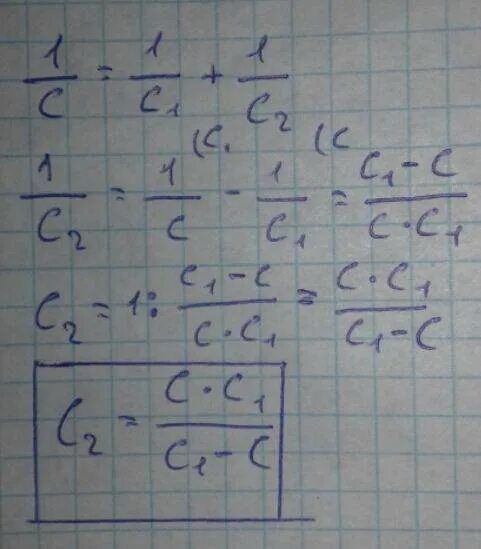 1/C = 1/C₁ + 1/C₂
1/C₂ = 1/C (C₁ - 1/C₁ (C = C₁-C/C·C₁
C₂ = 1: C₁-C/C·C₁ = C·C₁/C₁-C
C₂ = C·C₁/C₁-C